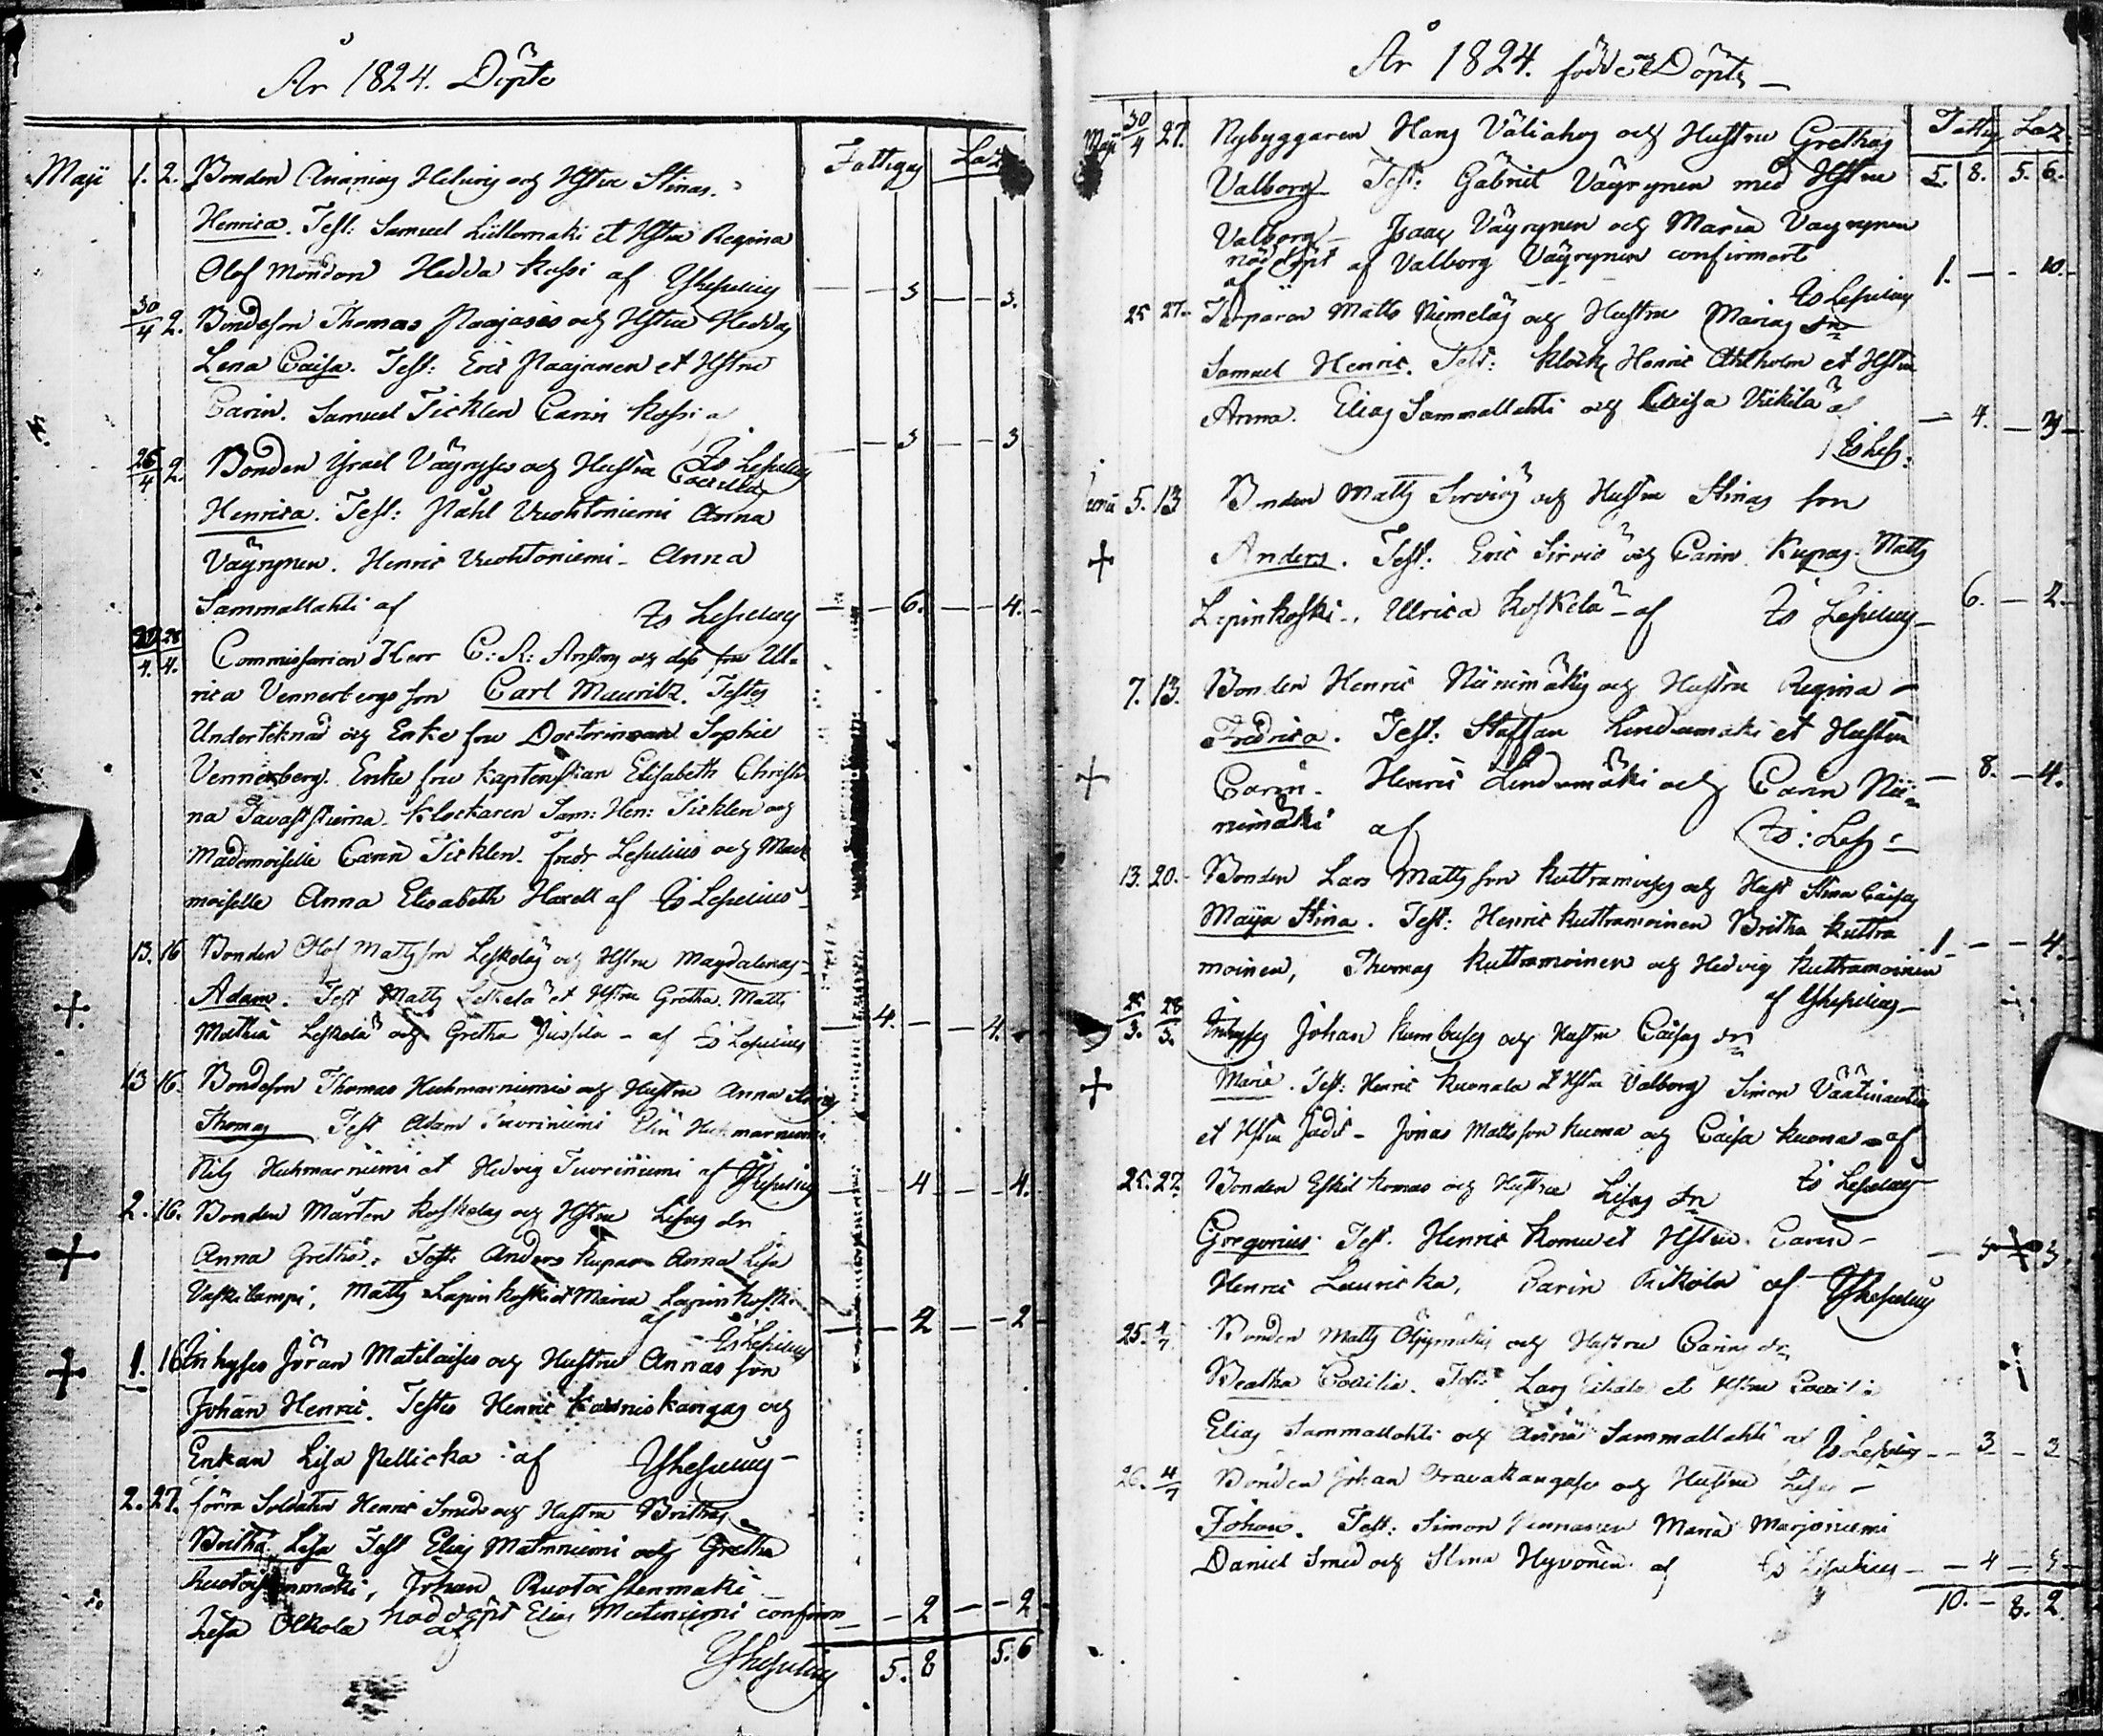 År 1824. Döpte
Fattigg Laz
Maji 1. 2. Bonden Ananias Helwig och Hstru Stinas
Henrica. Test: Samuel et Hstru Regina
Olof Hedda Kossi af 3 3.
30/4 2. Bondeson Thomas Paajases och Hstru Heddas
Lena Caisa. Test: Eric Paajanen et Hstru
Carin. Samuel Ticklen Carin Kossi a 3 3
26/4 2. Bonden Israel Väyryses och Hustru Caecilias
Henrica. Test: Påhl Vuohtoniemi Anna
Väyrynen. Henric Vuohtoniemi - Anna
Sammallahti af Es Lesselius 6. 4.
28/4. Commissarien Herr C: R: och dess fru Ul-
rica Vennerbergs son Carl Mauritz. Testes
Underteknad och Enke fru Doctorinnan Sophie
Vennerberg. Enke fru Elisabeth Christi
na Tavaststierna. Klockaren Sam: Hen: Ticklen och
Mademoiselle Carin Ticklen. Fredr Lesselius och Made
moiselle Anna Elisabeth Harell af Es Lesselius
13. 16 Bonden Olof Mattsson Leskeläs och Hstru Magdalenas
Adam. Test Matts Leskelä et Hstru Gretha. Matts
Leskelä och Gretha Jussila - af Es Lesselius 4. 4.
13 16. Bondeson Thomas Huhmarniemis och Hustru Anna
Thomas Test Adam Tuoriniemi Elin Huhmarniemi
Nils Huhmarniemi et Hedvig Tuoriniemi af 4 4.
2. 16. Bonden Mårten Koskelas och Hstru Lisas dr
Anna Gretha. Test: Anders Kupar Anna Lisa
Vaskilampi, Matts Lapinkoski et Maria Lapinkoski
af Es Lesselius 2 2
1. 16 Inhyses Jöran Matilaises och Hustru Annas son
Johan Henric. Testes Henric Karniskangas och
Enkan Lisa Pellicka af
2. 27. förra Soldaten Henric Smeds och Hustru Brithas
Britha Lisa Test Elias Matinniemi och Gretha
Johan Ruotoistenmäki
Lisa Olkola nöddöpt Elias confirm
af 2 2
5. 8 5. 6
År 1824. födde och Döpte
Fattig Laz.
Maji 30/4 27. Nybyggaren Hans Väliahos och Hustru Grethas 5. 8. 5. 6.
Valborg Test: Gabriel Väyrynen med Hstru
Valborg - Isaac Väyrynen och Maria Väyrynen
nöddöpt af Valborg Väyrynen confirmert
af Es Lesselius 1. 10.
25 27. Torparen Matts Niemeläs och Hustru Marias Sn
Samuel Henric. Test: Klock Henric Ahlholm et Hstru
Anna. Elias Sammallahti och Caisa Viikilä af 4. 3
Es Less:
Junii 5. 13 Bonden Matts Sirviös och Hustru Stinas son
Anders. Test: Eric Sirviö och Carin Kupas. Matts
Lapinkoski. Ulrica Koskela af Es Lesselius 6. 2.
7. 13. Bonden Henric Niinimäkis och Hustru Regina
Fredrica. Test: Staffan Lindumäki et Hustru
Carin. Henric Lindumäki och Carin Nii- 8. 4.
nimäki af Es: Less:
13. 20. Bonden Lars Mattsson Kuttramoises och Hust Stina Caisas
Maija Stina. Test: Henric Kuttramoinen Britha Kuttra 1 4.
moinen, Thomas Kuttramoinen och Hedvig Kuttramoinen
af
25/3. 28/5. Inhyses Johan Kumbuses och Hustru Caisas dr
Maria. Test: Henric Kuonala et Hstru Valborg Simon
et Hstru Judit - Jonas Mattsson Kuona och Caisa Kuona af
Es Lesselius
25. 27. Bonden Eskil Komus och Hustru Lisas Sn
Gregorius. Test. Henric Komu et Hstru Carin
Henric Lauricka, Carin Rikola af 3 3
25. 4/7 Bonden Matts och Hustru Carins dr
Beatha Caecilia. Test: Lars et Hstru Caecilia
Elias Sammallahti och Anna Sammallahti af Es Lesselius 3 3
26. 4/7 Bonden Johan Oravakangases och Hustru Lisas
Johan. Test: Simon Pennanen Maria Marjoniemi
Daniel Smed och Stina Hyvönen af Es Lesselius 4 5
10. 8. 2.